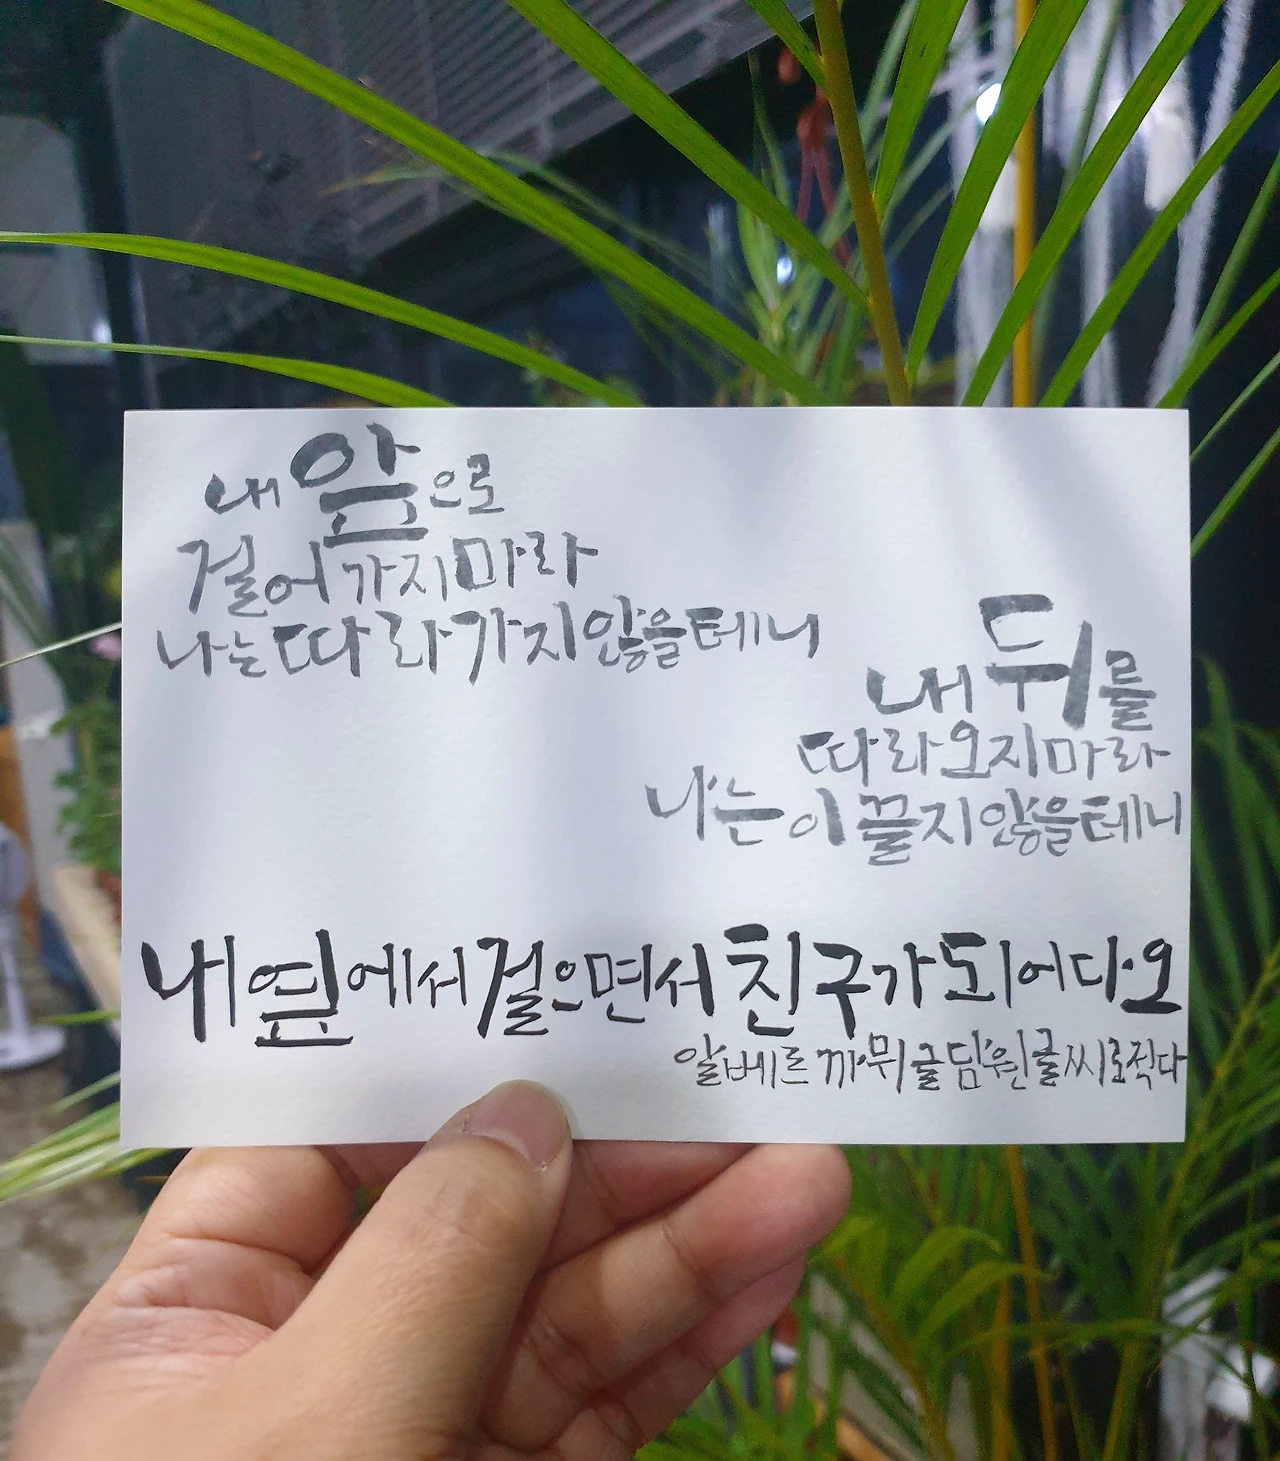 내 앞으로
걸어가지마라
나는 따라가지 않을테니
내 뒤를
따라오지마라
나는 이끌지 않을테니
내 옆에서 걸으면서 친구가 되어다오
알베르 까뮈 글 담원 글씨로 적다